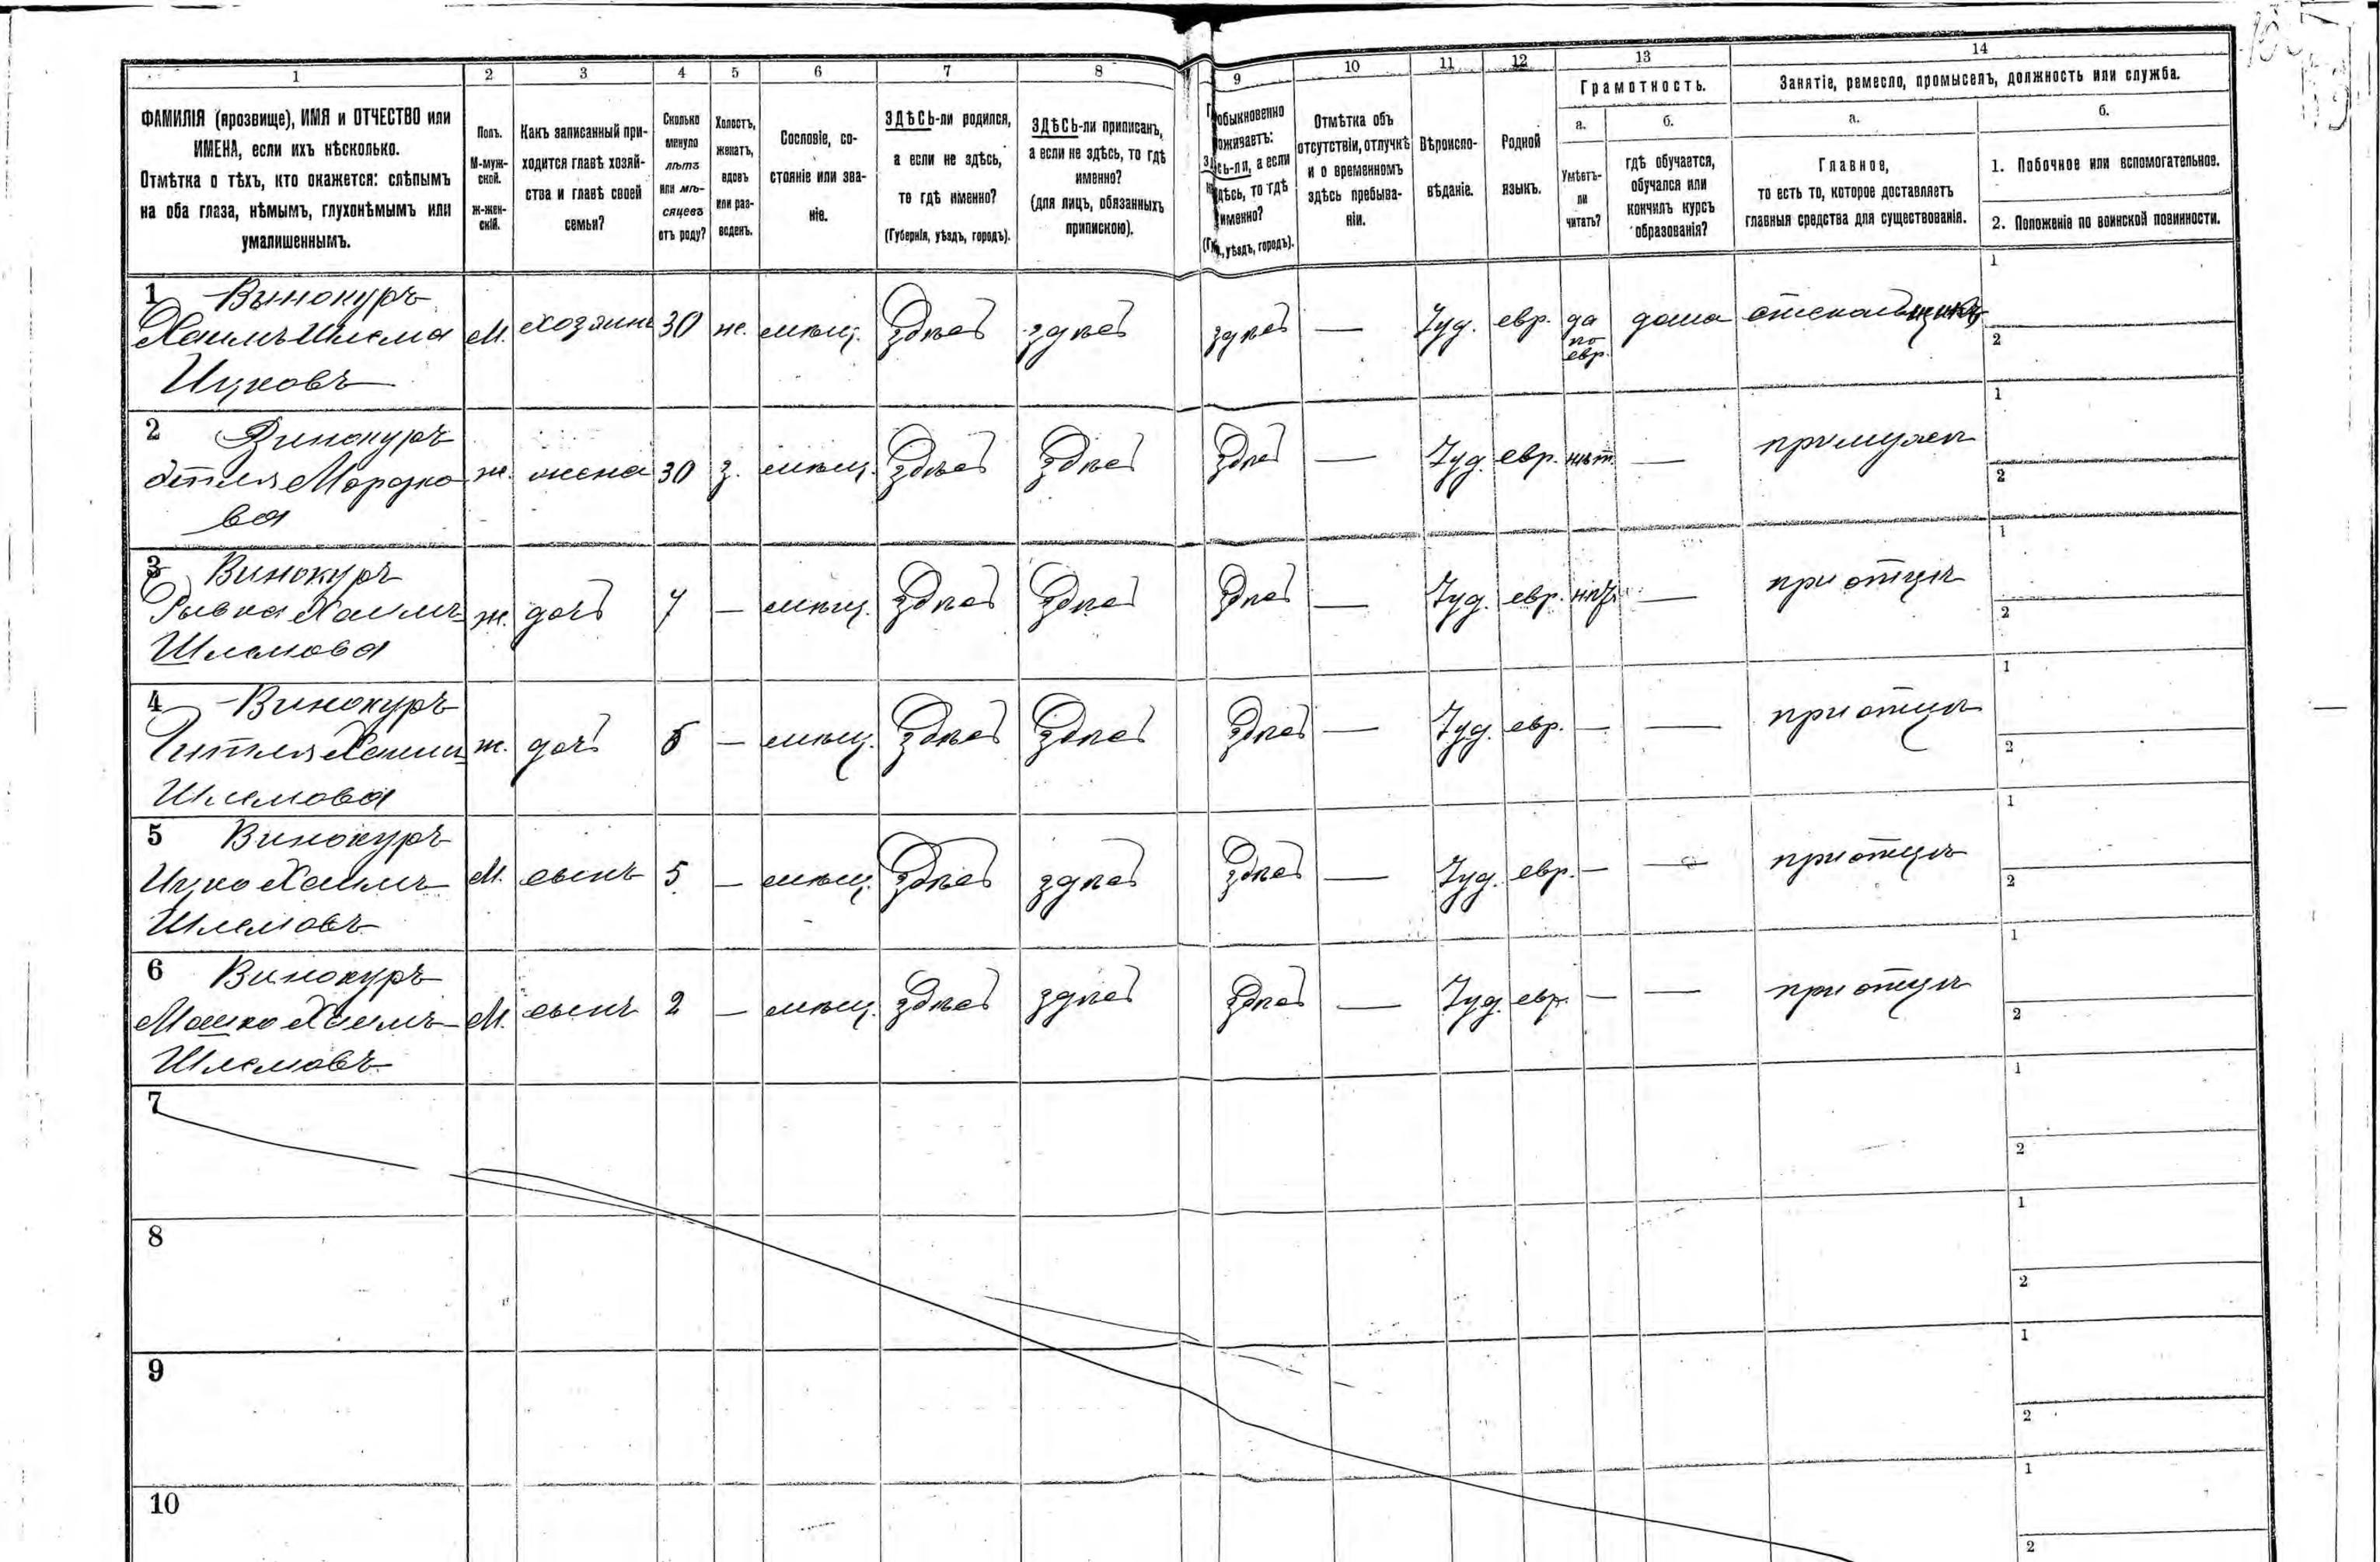 1 2 3 4 5 6 7 8 9 10 11 12 13 14
ФАМИЛІЯ (прозвище), ИМЯ и ОТЧЕСТВО или
ИМЕНА, если ихъ нѣсколько.
Отмѣтка о тѣхъ, кто окажется: слѣпымъ
на оба глаза, нѣмымъ, глухонѣмымъ или
умалишеннымъ.
Полъ.
М-муж-
ской.
ж-жен-
скій.
Какъ записанный при-
ходится главѣ хозяй-
ства и главѣ своей
семьи?
Сколько
минуло
лѣтъ
или мѣ-
сяцевъ
отъ роду?
Холостъ,
женатъ,
вдовъ
или раз-
веденъ.
Сословіе, со-
стояніе или зва-
ніе.
ЗДѢСЬ-ли родился,
а если не здѣсь,
то гдѣ именно?
(Губернія, уѣздъ, городъ).
ЗДѢСЬ-ли приписанъ,
а если не здѣсь, то гдѣ
именно?
(для лицъ, обязанныхъ
припискою).
обыкновенно
оживаетъ:
сь-ли, а если
дѣсь, то гдѣ
именно?
уѣздъ, городъ).
Отмѣтка объ
отсутствіи, отлучкѣ
и о временномъ
здѣсь пребыва-
ніи.
Вѣроиспо-
вѣданіе.
Родной
языкъ.
Грамотность.
а.
Умѣетъ-
ли
читать?
б.
гдѣ обучается,
обучался или
кончилъ курсъ
образованія?
Занятіе, ремесло, промыселъ, должность или служба.
а.
Главное,
то есть то, которое доставляетъ
главныя средства для существованія.
б.
1. Побочное или вспомогательное.
2. Положеніе по воинской повинности.
1 Винокуръ
Хаимъ Шлема М. хозяинъ 30 ж. мѣщ. здѣсь здѣсь здѣсь — Іуд. евр. да по евр. дома стекольщикъ 1 2
Ицковъ
2 Винокуръ
Этля Мордко ж. жена 30 з. мѣщ. здѣсь здѣсь здѣсь — Іуд. евр. нѣт. — при мужѣ 1 2
ва
3 Винокуръ
Рывка Хаимъ ж. дочь 7 — мѣщ. здѣсь здѣсь здѣсь — Іуд. евр. нѣт — при отцѣ 1 2
Шлемова
4 Винокуръ
Гитля Хаимъ ж. дочь 6 — мѣщ. здѣсь здѣсь здѣсь — Іуд. евр. — — при отцѣ 1 2
Шлемова
5 Винокуръ
Ицко Хаимъ М. сынъ 5 — мѣщ. здѣсь здѣсь здѣсь — Іуд. евр. — — при отцѣ 1 2
Шлемовъ
6 Винокуръ
Мошко Хаимъ М. сынъ 2 — мѣщ. здѣсь здѣсь здѣсь — Іуд. евр. — — при отцѣ 1 2
Шлемовъ
7 1 2
8 1 2
9 1 2
10 1 2